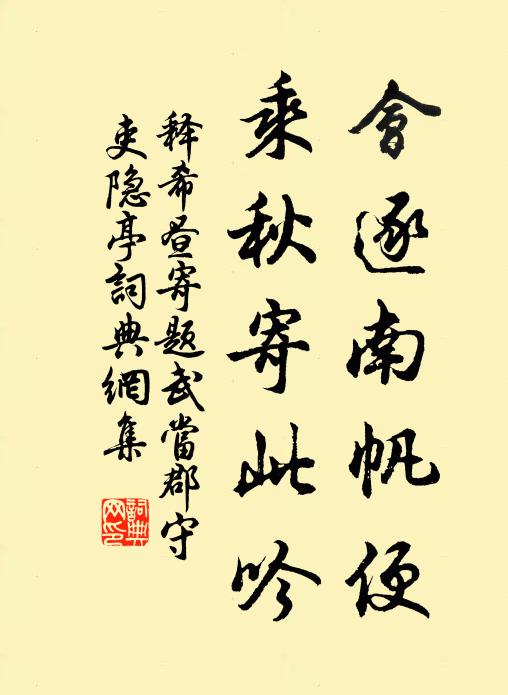 會逐南帆便
乘秋寄此吟
释希昼寄題武當郡守
吏隐亭詞典網集
詞典网印